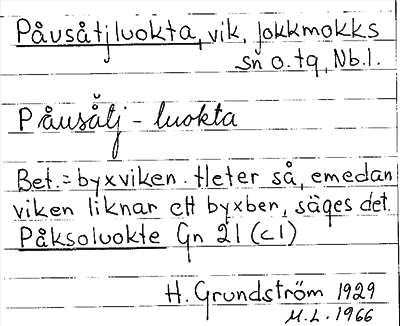 Påusåtjluokta, vik, Jokkmokks
sn o. tg, Nb.l.
Påusåtj - luokta
Bet. = byxviken. Heter så, emedan
viken liknar ett byxben, säges det.
Påksoluokte Gn 21 (c1)
H. Grundström 1929
M.L. 1966